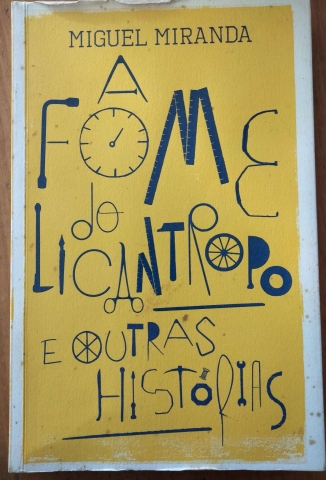 MIGUEL MIRANDA
A
FOME
do
LICANTROPO
E OUTRAS
HISTÓRIAS